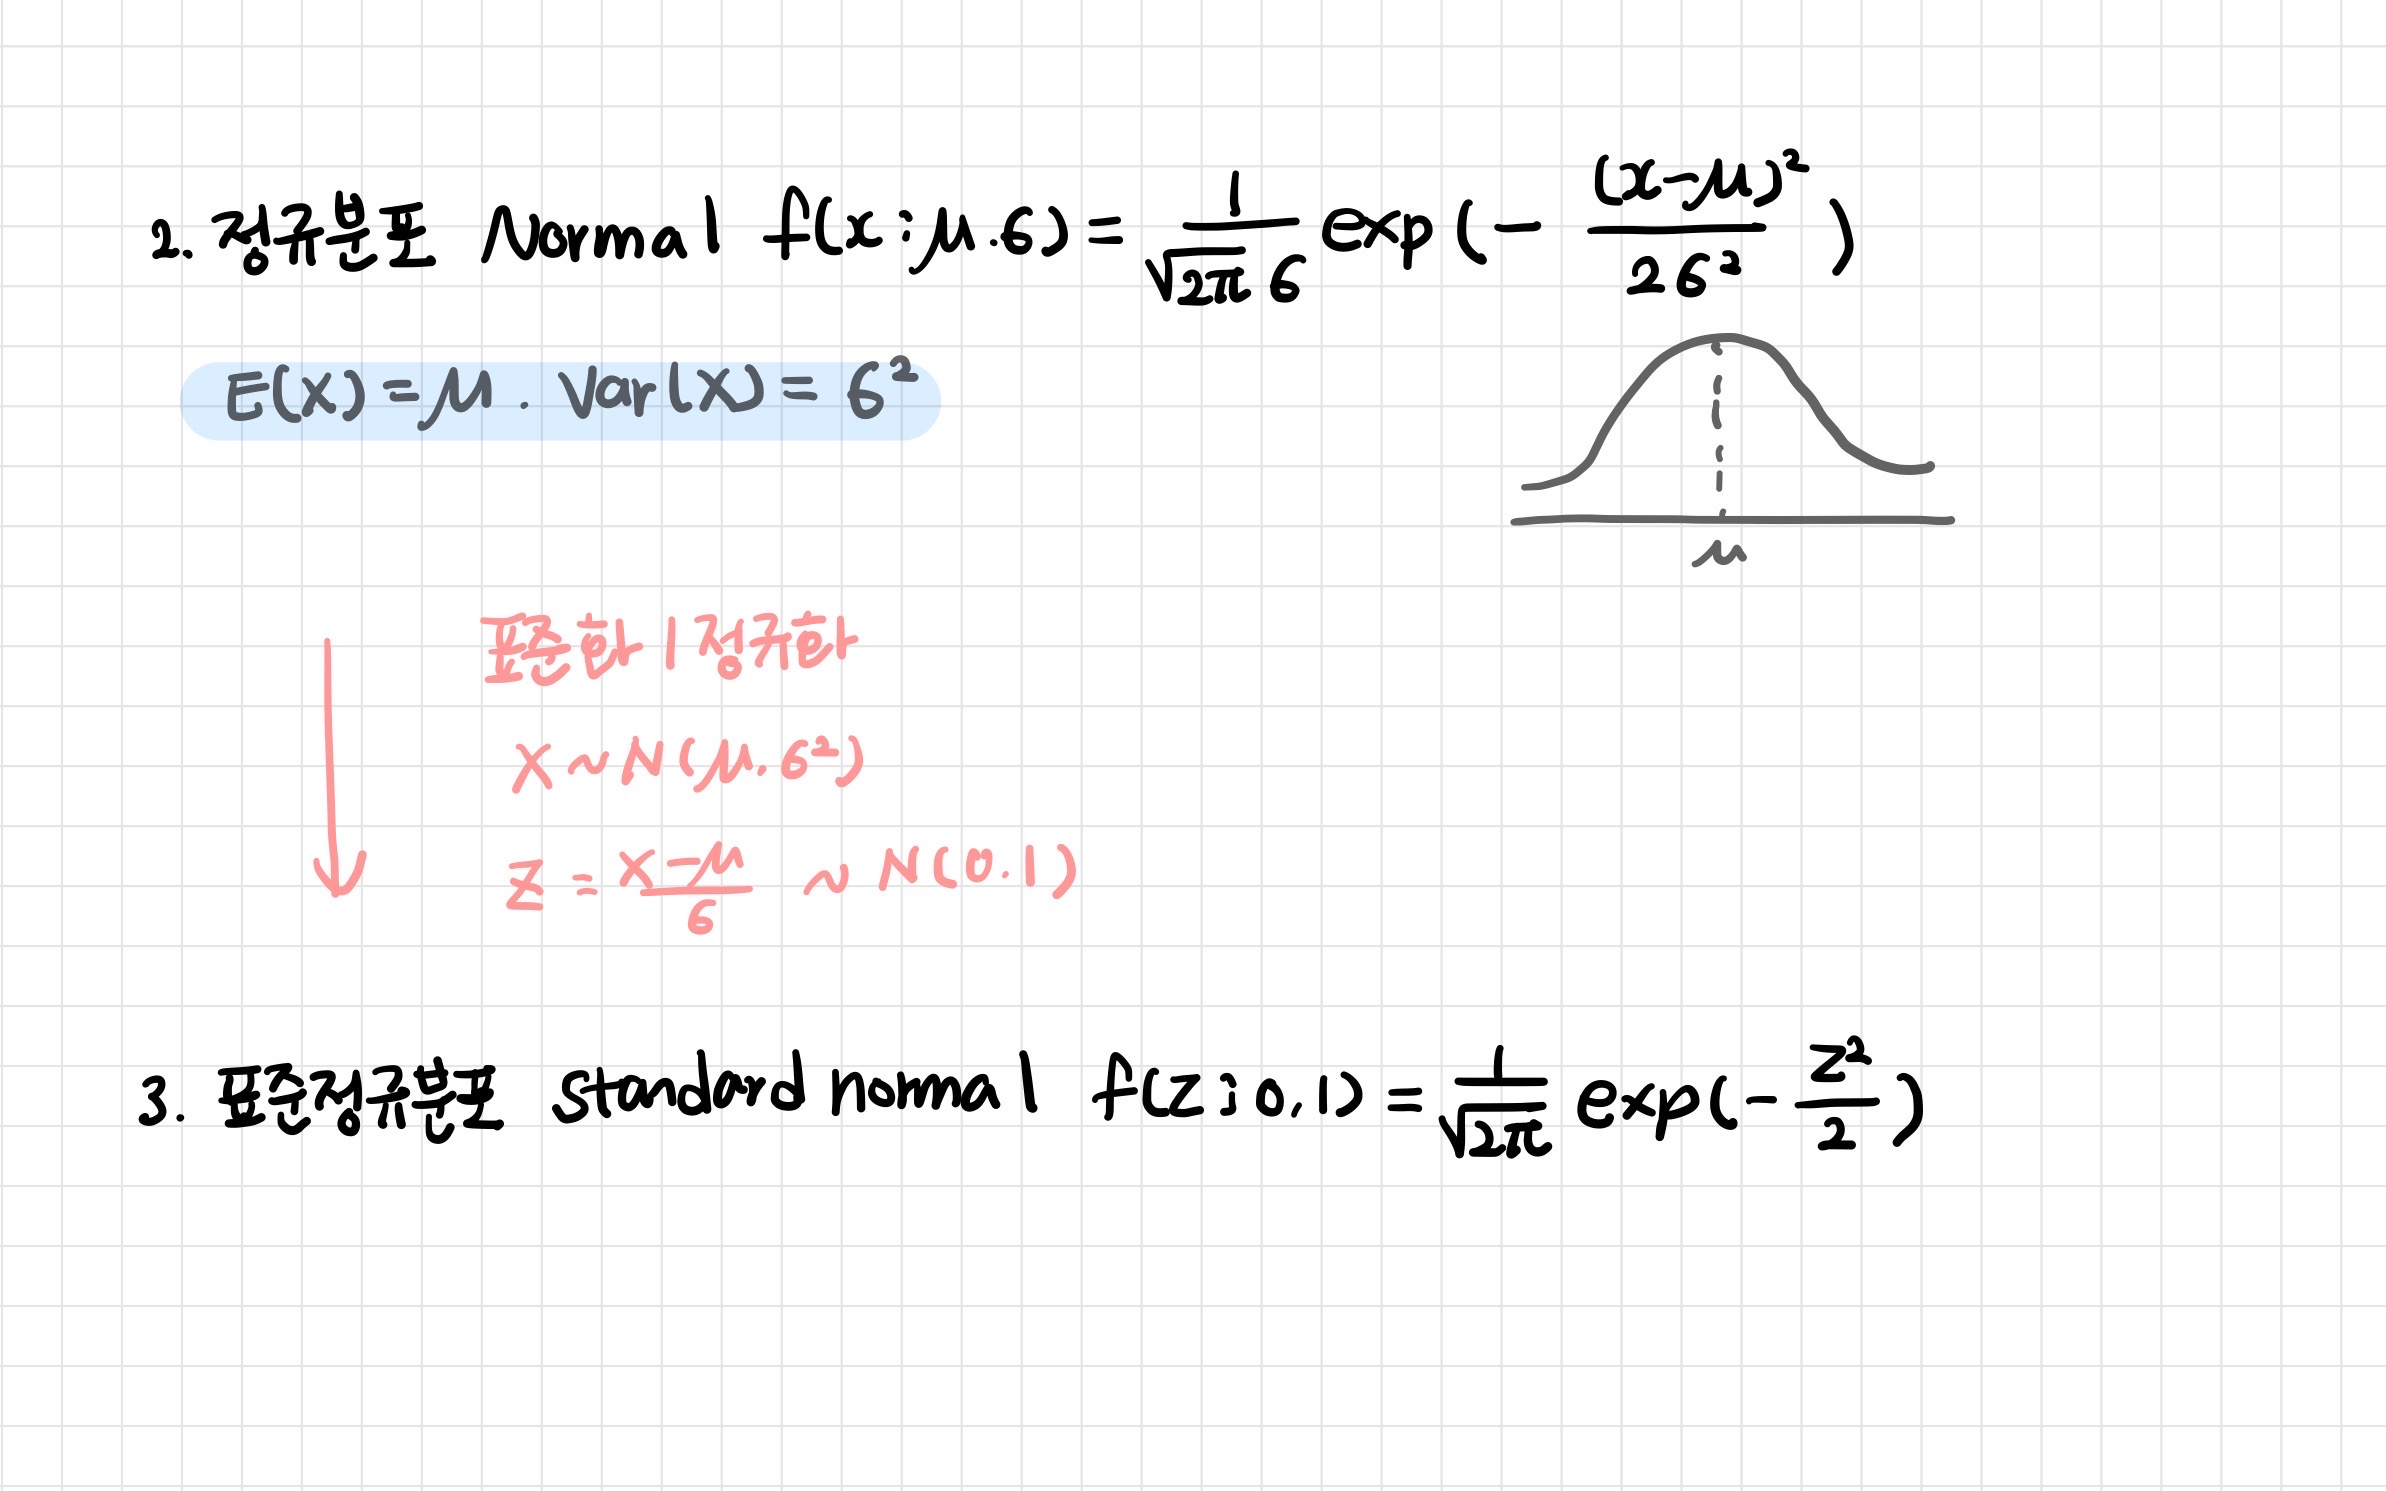 2. 정규분포 Normal f(x; μ, σ) = 1/(√2π σ) exp(- (x-μ)²/2σ²)
E(X) = μ. Var(X) = σ²
μ
표준화 / 정규화
X ~ N(μ, σ²)
Z = (X-μ)/σ ~ N(0, 1)
3. 표준정규분포 standard normal f(z; 0, 1) = 1/√2π exp(- z²/2)